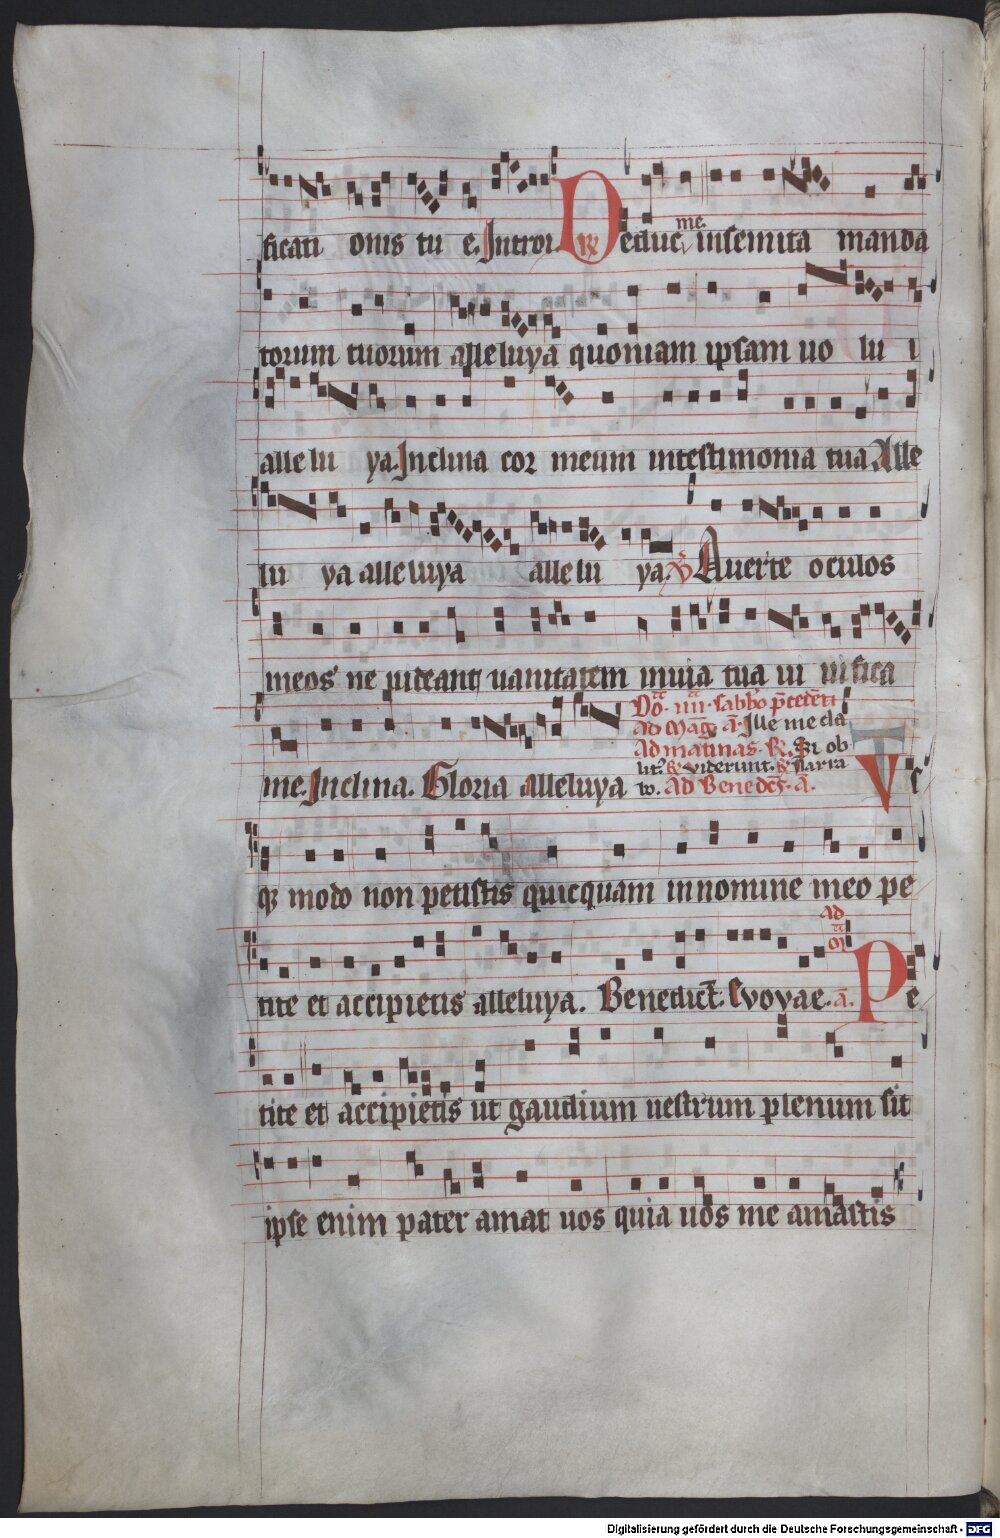 ficati onis tu e. Introi. R Deduc me insemita manda
torum tuorum alleluya quoniam ipsam uo lu i
allelu ya. Inclina cor meum intestimonia tua Alle
lu ya alleluya allelu ya. V Auerte oculos
meos ne uideant uanitatem inuia tua ui uifica
Do. iiii. sabbo pcedenti
Ad Mag. a. Ille me cla
Ad matinas. R. Si ob
lit. R viderunt. R Narra
bo. Ad Benedcs. a.
me. Inclina. Gloria alleluya
Vs
qz modo non petistis quicquam innomine meo pe
tite et accipietis alleluya. Benedict. Evovae. ad M a. Pe
tite et accipietis ut gaudium uestrum plenum sit
ipse enim pater amat uos quia uos me amastis
Digitalisierung gefördert durch die Deutsche Forschungsgemeinschaft - DFG